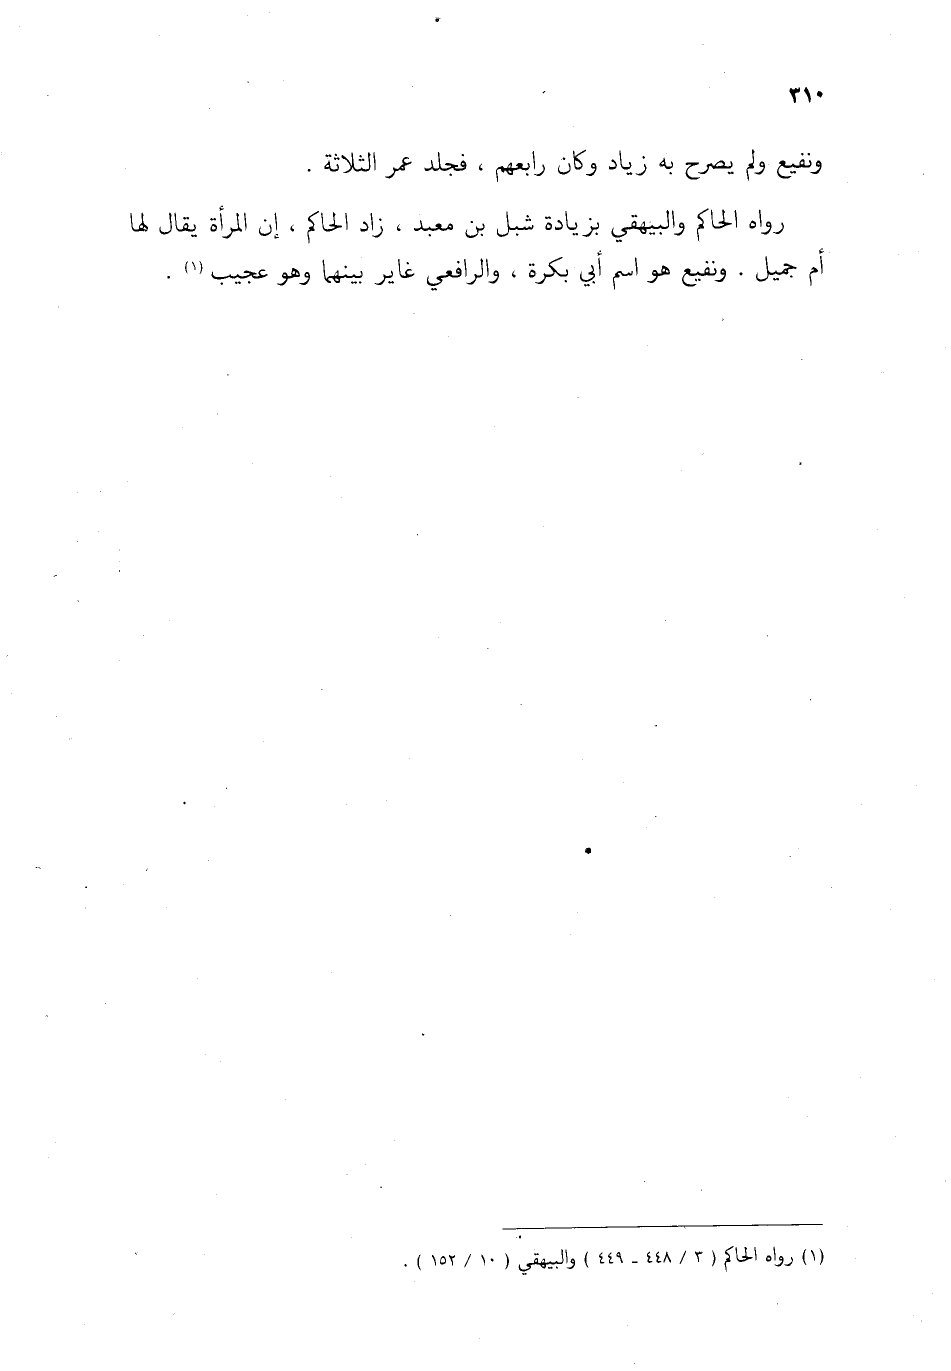 ٣١٠
ونفيع ولم يصرح به زياد وكان رابعهم ، فجلد عمر الثلاثة .
رواه الحاكم والبيهقي بزيادة شبل بن معبد ، زاد الحاكم ، إن المرأة يقال لها
أم جميل . ونفيع هو اسم أبي بكرة ، والرافعي غاير بينهما وهو عجيب (١) .
(١) رواه الحاكم ( ٣ / ٤٤٨ ـ ٤٤٩ ) والبيهقي ( ١٠ / ١٥٢ ) .